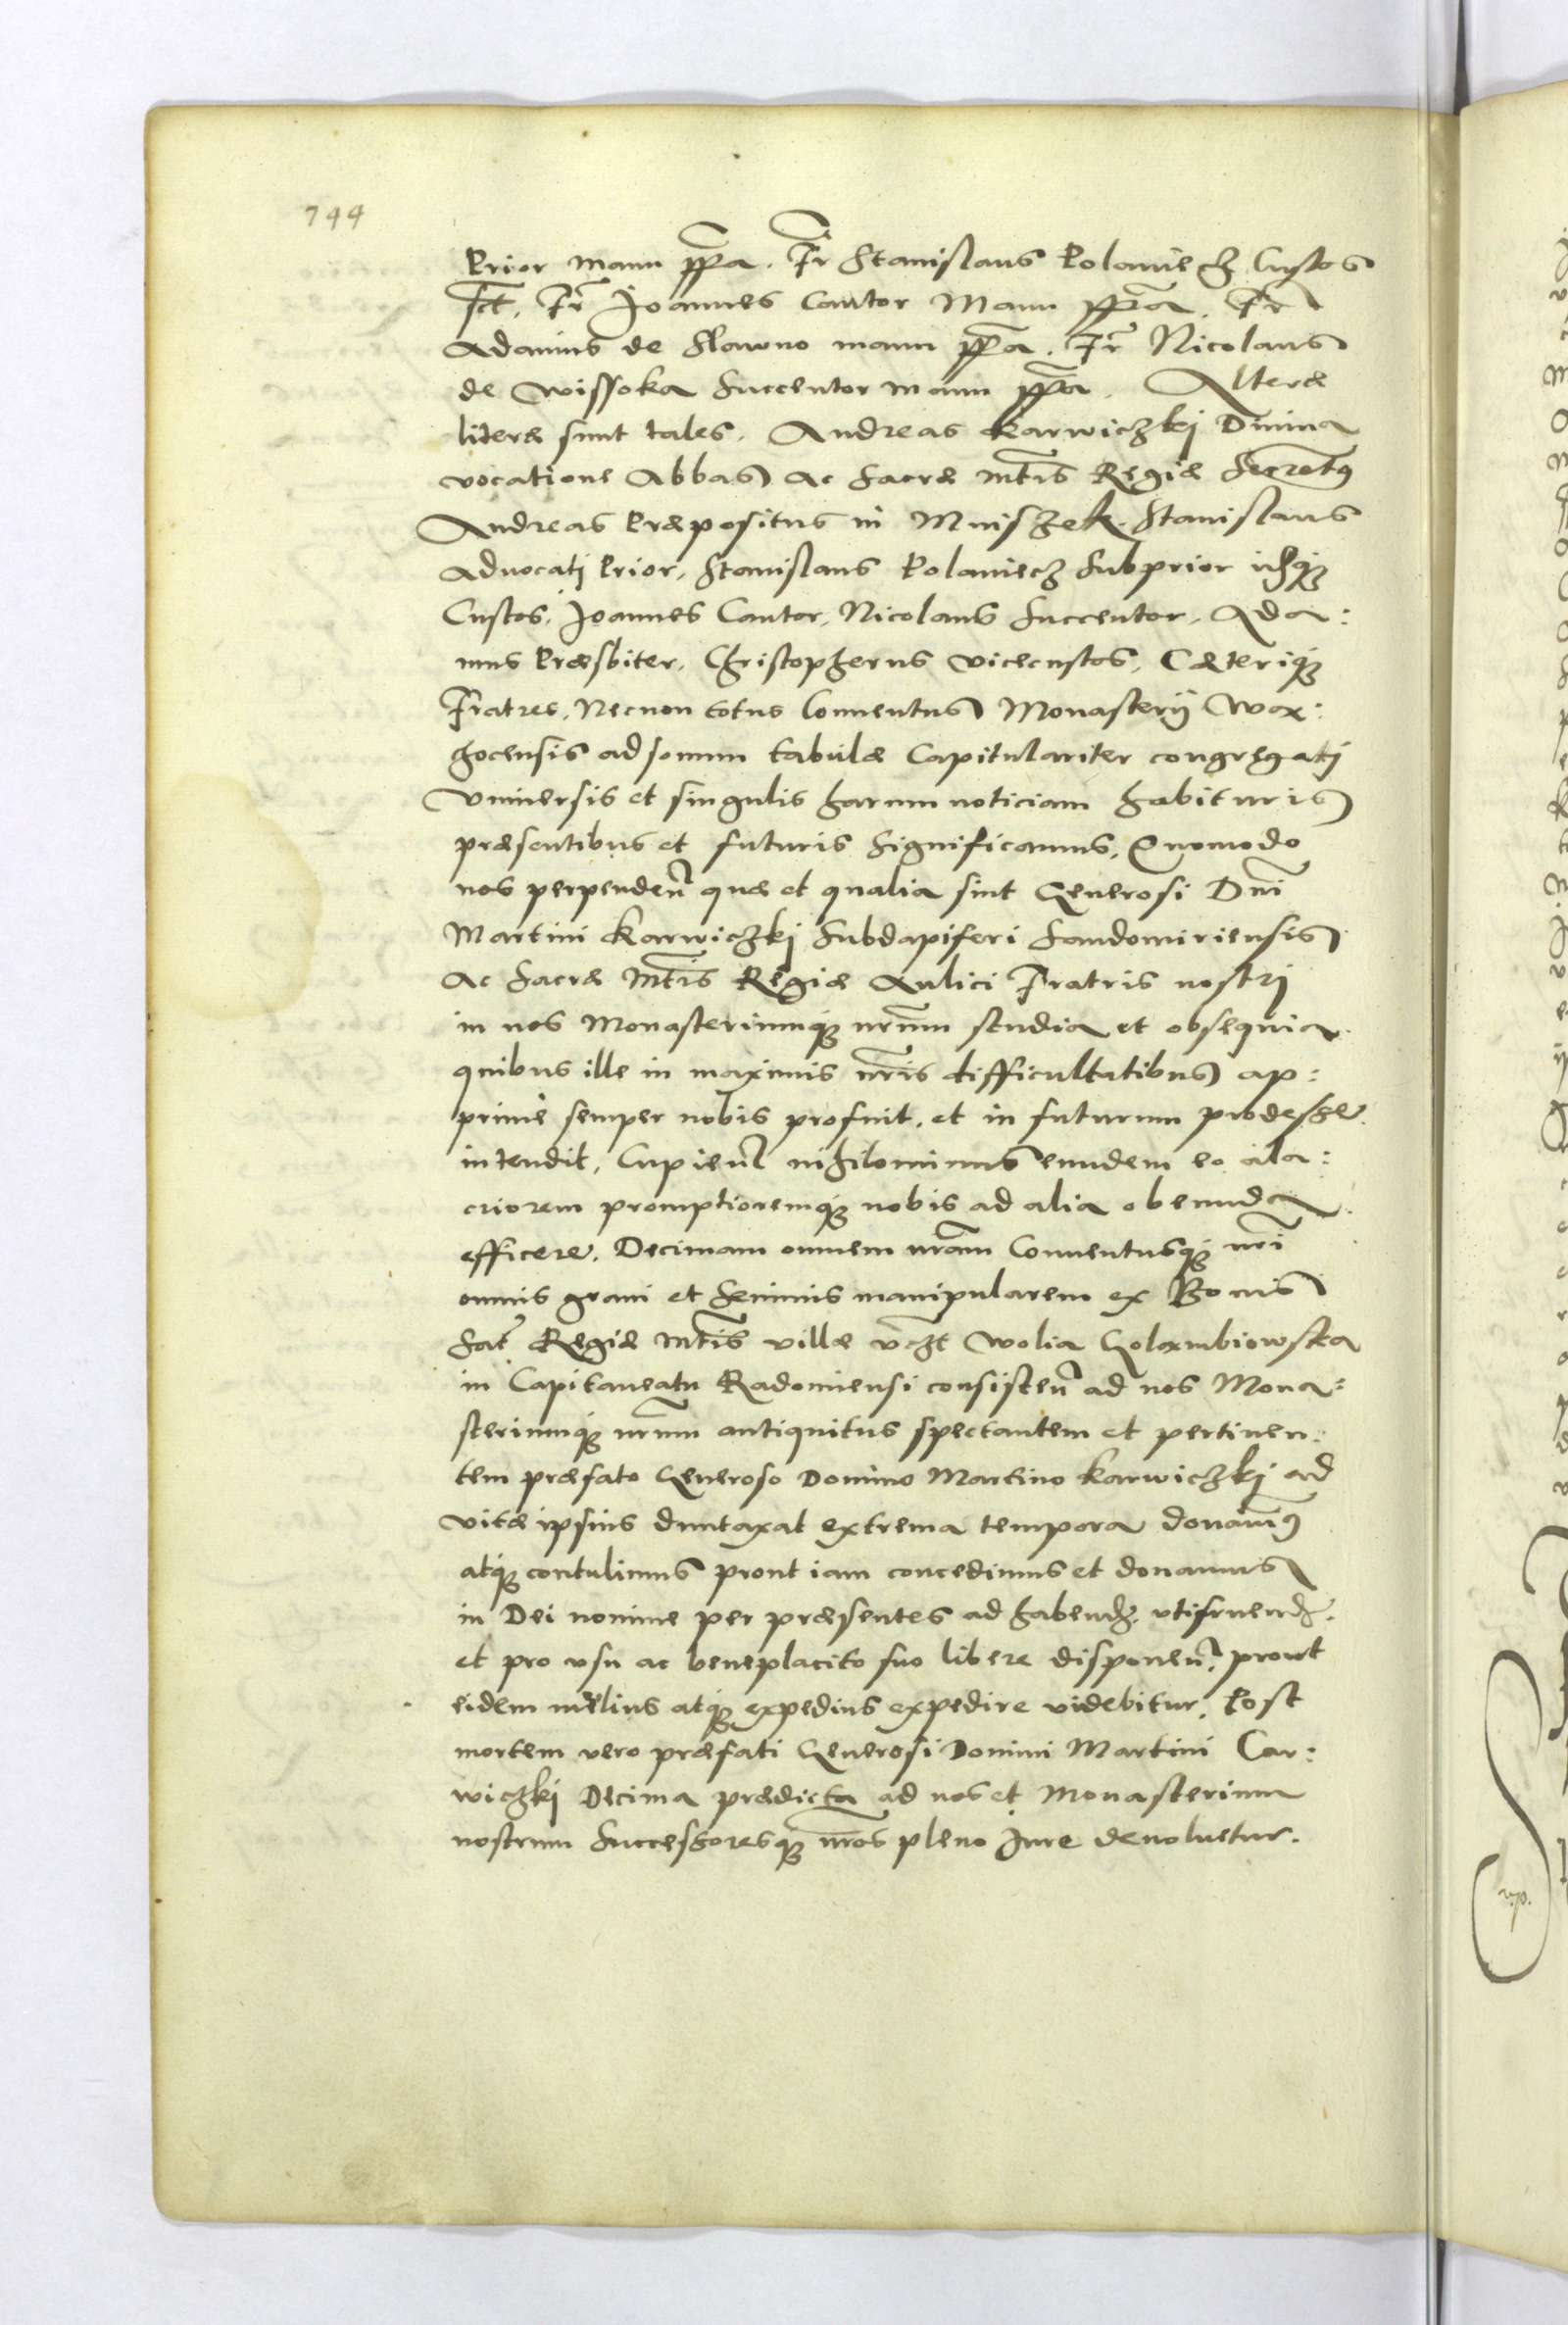 744
Prior manu ppa. Fr Stanislaus Polaniecz Custos
sst. Fr Joannes Cantor Manu ppria. Fr
Adamus de Slawno manu ppa. Fr Nicolaus
de Wissoka Succentor manu ppa. Alteræ
literæ sunt tales. Andreas Karwiczkj Diuina
vocatione Abbas Ac Sacræ Mtis Regiæ Secretq
Andreas Præpositus in Mniszek. Stanislaus
Aduocatj Prior, Stanislaus Polaniecz Subprior idq
Custos, Joannes Cantor, Nicolaus Succentor, Ada:
mus Præsbiter, Christopherus vicecustos, Cæteriq
Fratres, Necnon totus Conuentus Monasterÿ Wax:
hocensis ad sonum tabulæ Capitulariter congregatj
Vniuersis et singulis harum noticiam habituris
præsentibus et futuris Significamus, Quomodo
nos perpenden quæ et qualia sint Generosi Dni
Martini Karwiczkj Subdapiferi Sandomiriensis
Ac Sacræ Mtis Regiæ Aulici Fratris nostrj
in nos Monasteriumq nrum studia et obsequia
quibus ille in maximis nris difficultatibus ap:
prime semper nobis profuit, et in futurum prodesse
intendit, Cupient nihilominus eundem eo ala:
criorem promptioremq nobis ad alia obeunda
efficere. Decimam omnem nram Conuentusq nri
omnis grani et seminis manipularem ex Bonis
Sac Regiæ Mtis villæ vczt Wolia Golambiowska
in Capitaneatu Radomiensi consisten ad nos Mona:
steriumq nrum antiquitus spectantem et pertinen:
tem præfato Generoso Domino Martino Karwiczkj ad
vitæ ipsius duntaxat extrema tempora donauimq
atq contulimus prout iam concedimus et donamus
in Dei nomine per præsentes ad habend. vtifruend.
et pro vsu ac beneplacito suo libere disponen, prout
eidem melius atq expedius expedire videbitur. Post
mortem vero præfati Generosi Domini Martini Car:
wiczkj Decima prædicta ad nos et Monasterium
nostrum Successoresq nros pleno Jure deuoluetur.